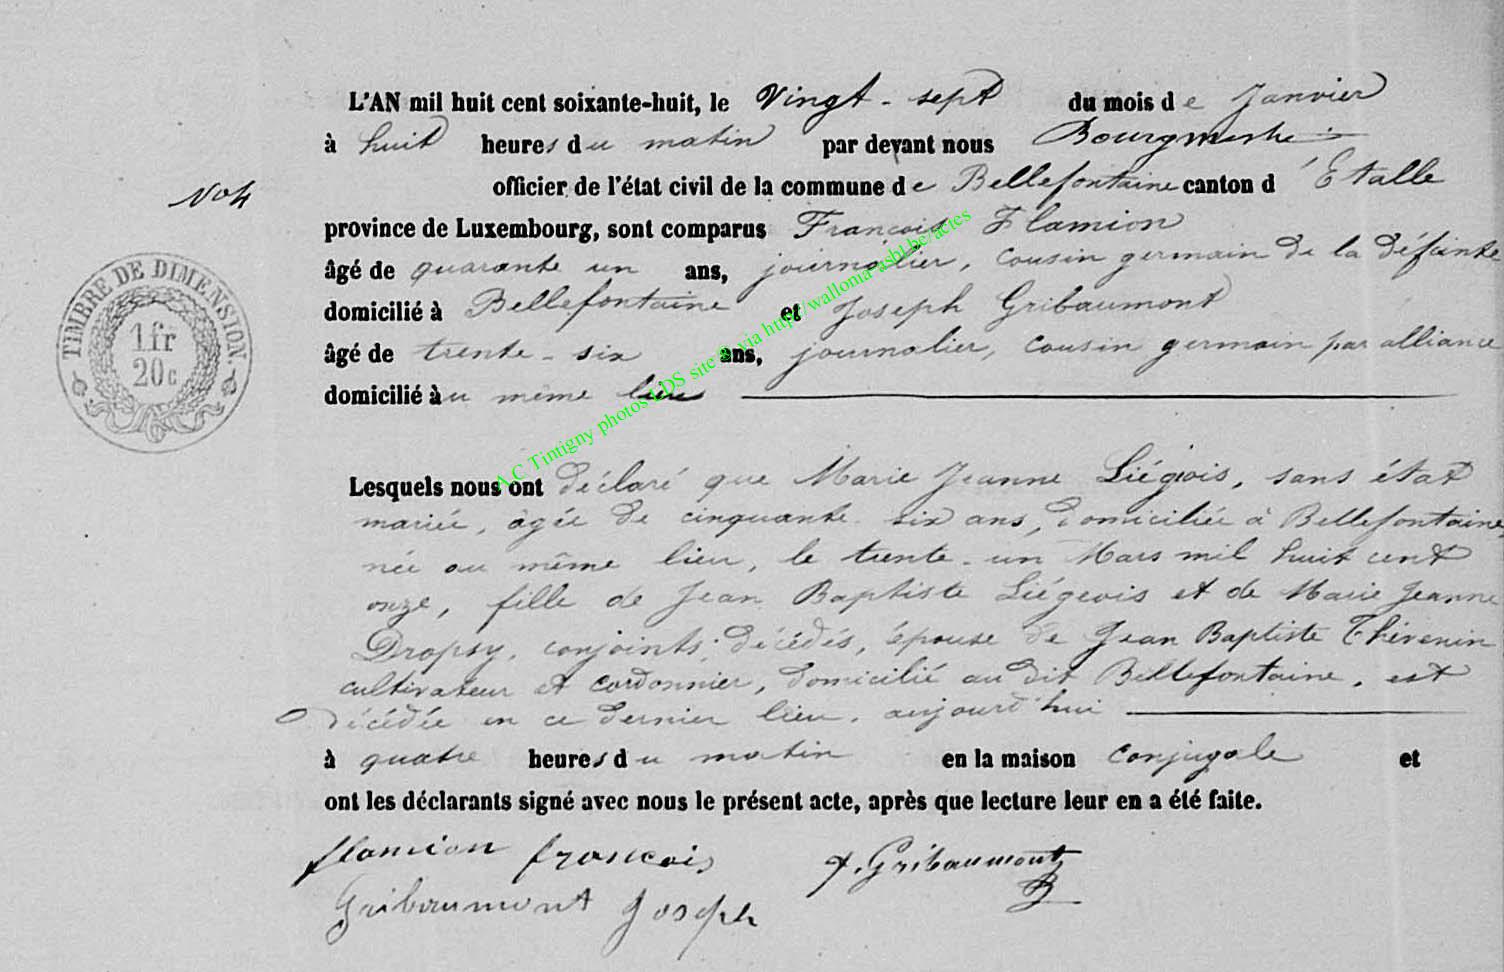 L'AN mil huit cent soixante-huit, le Vingt-sept du mois de Janvier
à huit heures du matin par devant nous Bourgmestre
No 4
officier de l'état civil de la commune de Bellefontaine canton d'Etalle
province de Luxembourg, sont comparus François Flamion
âgé de quarante un ans, journalier, cousin germain de la défunte
domicilié à Bellefontaine et Joseph Gribaumont
âgé de trente-six ans, journalier, cousin germain par alliance
domicilié au même lieu
TIMBRE DE DIMENSION
1 fr
20 c
A.C Tintigny photos LDS site © via http://wallonia-asbl.be/actes
Lesquels nous ont déclaré que Marie Jeanne Liégeois, sans état
mariée, âgée de cinquante-six ans, domiciliée à Bellefontaine,
née au même lieu, le trente-un Mars mil huit cent
onze, fille de Jean Baptiste Liégeois et de Marie Jeanne
Dropsy, conjoints, décédés, épouse de Jean Baptiste Thévenin
cultivateur et cordonnier, domicilié au dit Bellefontaine, est
décédée en ce dernier lieu, aujourd'hui
à quatre heures du matin en la maison conjugale et
ont les déclarants signé avec nous le présent acte, après que lecture leur en a été faite.
flamion françois
Gribaumont Joseph
Gribaumont